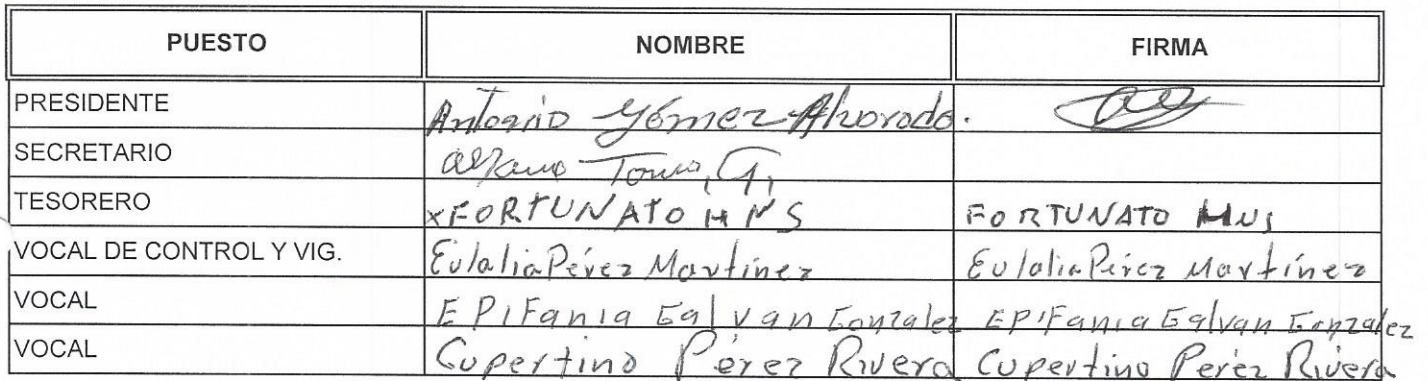 PUESTO NOMBRE FIRMA
PRESIDENTE Antonio Gómez Alvorado.
SECRETARIO
TESORERO xFORTUNATO H N S FORTUNATO HNS
VOCAL DE CONTROL Y VIG. Eulalia Pérez Martínez Eulalia Pérez Martínez
VOCAL EPIFania Galvan Gonzalez EPIFania Galvan Gonzalez
VOCAL Cupertino Pérez Rivera Cupertino Peréz Rivera